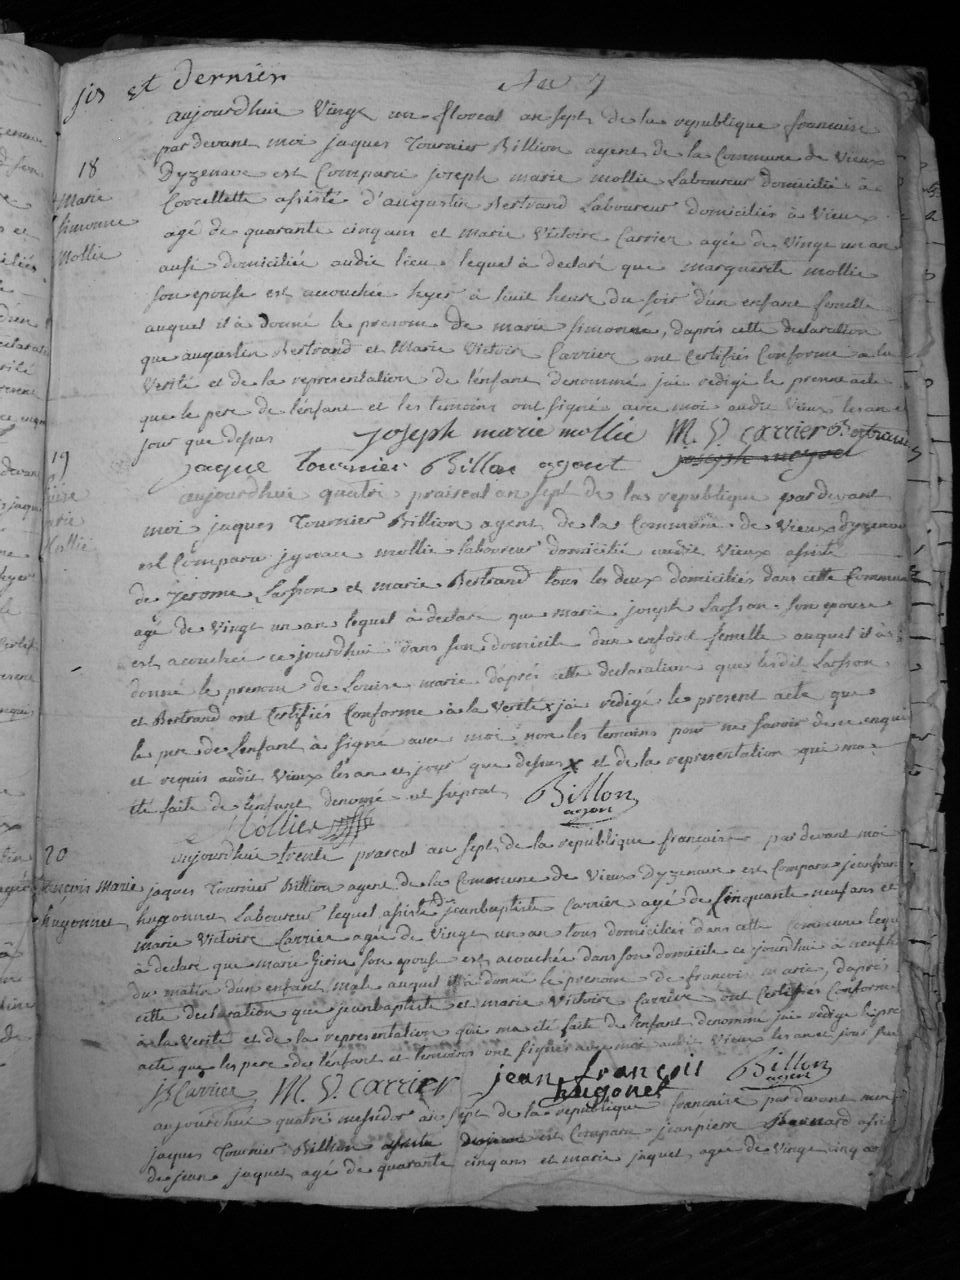 six et dernier
an 7
aujourdhui Vingt un floreal an sept de la republique francaise
par devant moi jaques Tournier Billion agent de la Commune de Vieux
Dyzenave est Comparu joseph marie mollie Laboureur domicilié à
Corcellette asisté d'augustin Bertrand Laboureur domiciliés à Vieux
agé de quarante cinq ans et Marie Victoire Carrier agée de Vingt un an
ausi domiciliée audit lieu lequel à declaré que marguerite mollie
son epouse est acouchée hyer à huit heure du soir d'un enfant femelle
auquel il à donné le prenom de marie simonne, daprés cette declaration
que augustin Bertrand et Marie Victoire Carrier ont Certifiés Conforme à la
Verité et de la representation de lenfant denommé jai redigé le present acte
que le pere de lenfant et les temoins ont signé avec moi audit Vieux les an et
jour que desus
18
Marie
simonne
Mollie
joseph marie mollie M. V. carrier Bertrand
jaque tournier Billon agent
19
Louise
marie
Mollié
aujourdhui quatre prairéal an sept de la republique par devant
moi jaques Tournier Billion agent de la Commune de Vieux dyzenave
est Comparu mollie laboureur domicilié audit Vieux asisté
de jerome Lasson et marie Bertrand tous les deux domiciliés dans cette Commune
agé de Vingt un an lequel à declaré que marie joseph Lasson son epouse
est acouchée ce jourdhui dans son domicile dun enfant femelle auquel il à
donné le prenom de Louise marie daprés cette declaration que lesdit Lasson
et Bertrand ont Certifiés Conforme à la Verité x jai redigé le present acte que
le pere de lenfant à signé avec moi non les temoins pour ne savoir de ce enquis
et requis audit Vieux les an et jour que desus x et de la representation qui ma
été faite de lenfant denomé
Mollier Billon
agent
20
françois marie
hugonnet
aujourdhui trente praréal an sept de la republique française par devant moi
jaques Tournier Billion agent de la Commune de Vieux Dyzenave est Comparu jeanfran
hugonnet Laboureur lequel asisté de jeanbaptiste Carrier agé de Cinquante neuf ans et
marie Victoire Carrier agée de Vingt un an tous domiciliés dans cette commune lequ
à declaré que marie Girin son epouse est acouchée dans son domicile ce jourdhui à neuf h
du matin dun enfant mal auquel il à donné le prenom de francois marie, daprés
cette declaration que jeanbaptiste et marie Victoire Carrier ont Certifiés Conforme
à la Verité et de la representation qui ma été faite de lenfant denommé jai redigé le pre
acte que les pere de lenfant et temoins ont signés avec moi audit Vieux les an et jour que
JB Carrier M. V. carrier jean françois Billon
hugonet agent
aujourdhui quatre mesidor an sept de la republique francaise par devant moi
jaques Tournier Billion est Comparu jeanpierre Bernard asisté
de jean jaquet agé de quarante cinq ans et marie jaquet agée de Vingt cinq an